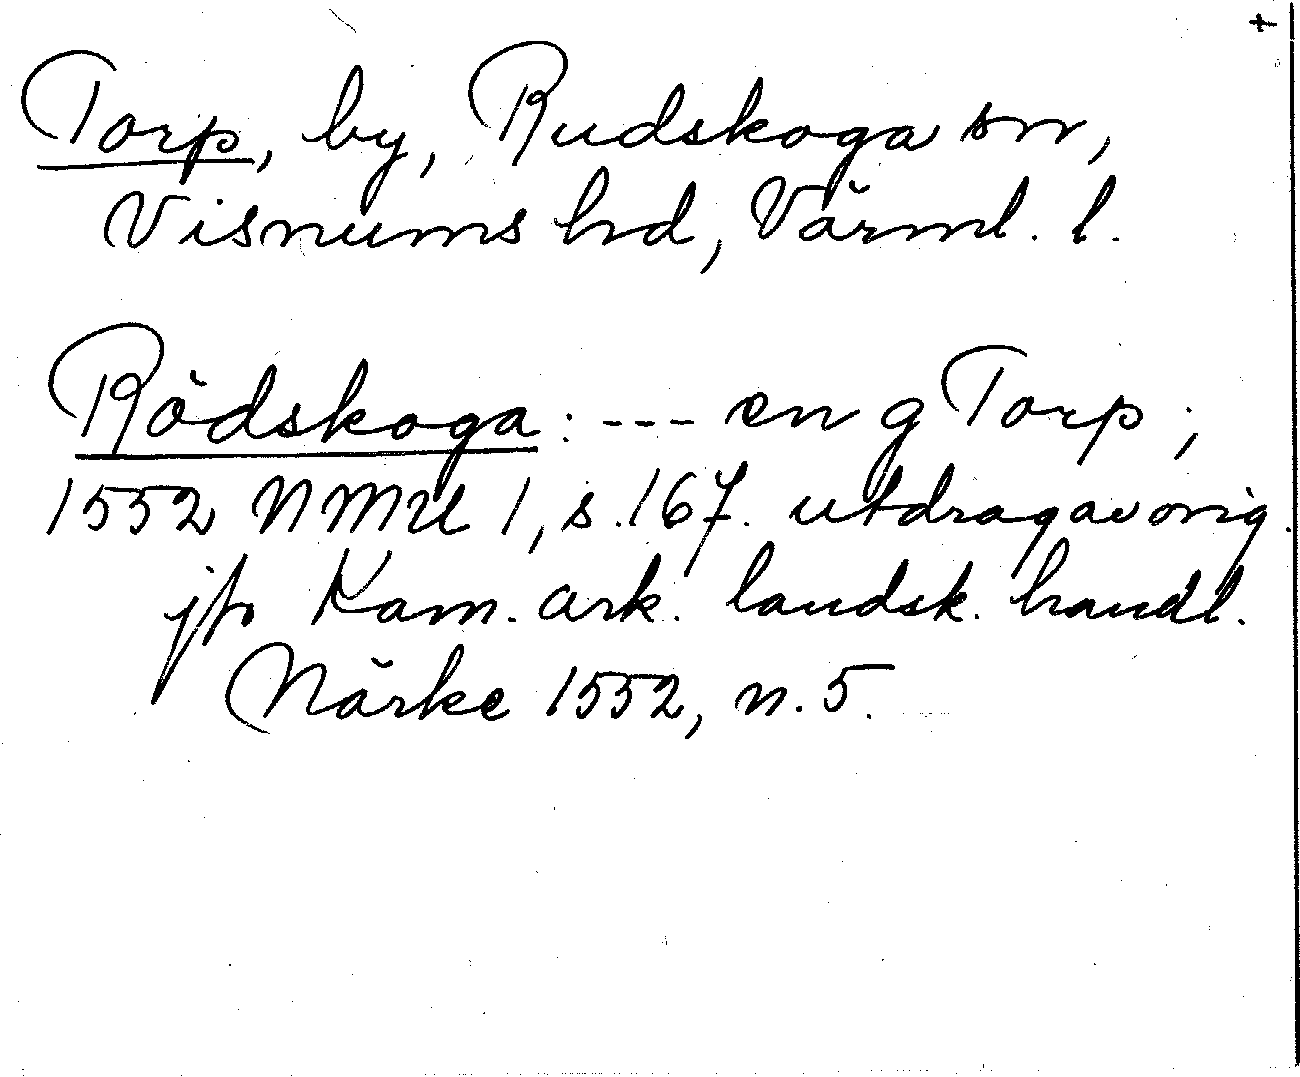 Torp, by, Rudskoga sn,
Visnums hd, Värml. l.
Rödskoga: --- en g Torp;
1552 NMU 1, s. 167. utdrag av orig.
jfr Kam. ark. landsk. handl.
Närke 1552, n. 5.